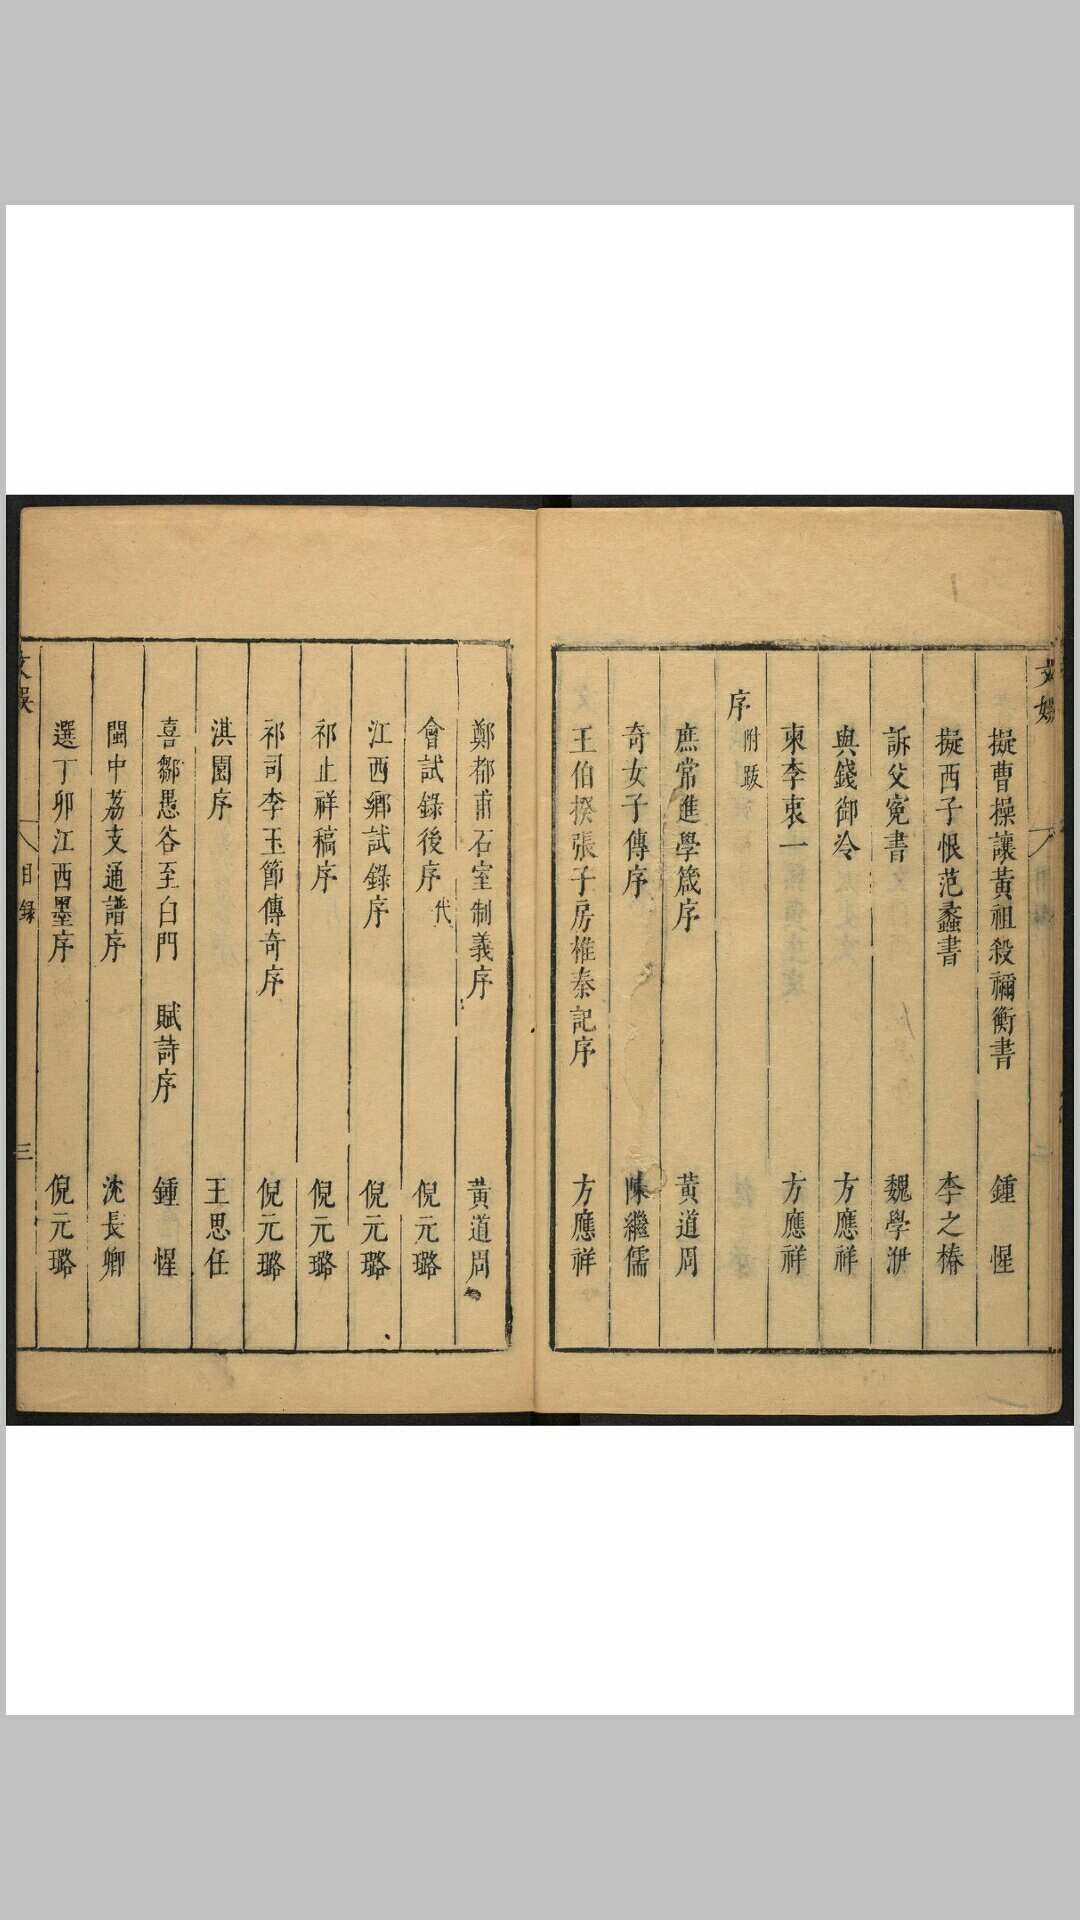 文娛
擬曹操讓黃祖殺禰衡書 鍾惺
擬西子恨范蠡書 李之椿
訴父寃書 魏學洢
與錢御冷 方應祥
柬李衷一 方應祥
序 附跋
庶常進學箴序 黃道周
奇女子傳序 陳繼儒
王伯揆張子房椎秦記序 方應祥
鄭都甫石室制義序 黃道周
會試錄後序 代 倪元璐
江西鄉試錄序 倪元璐
祁止祥稿序 倪元璐
祁司李玉節傳奇序 倪元璐
淇園序 王思任
喜鄒愚谷至白門 賦詩序 鍾惺
閩中荔支通譜序 沈長卿
選丁卯江西墨序 倪元璐
文娛 目錄 三